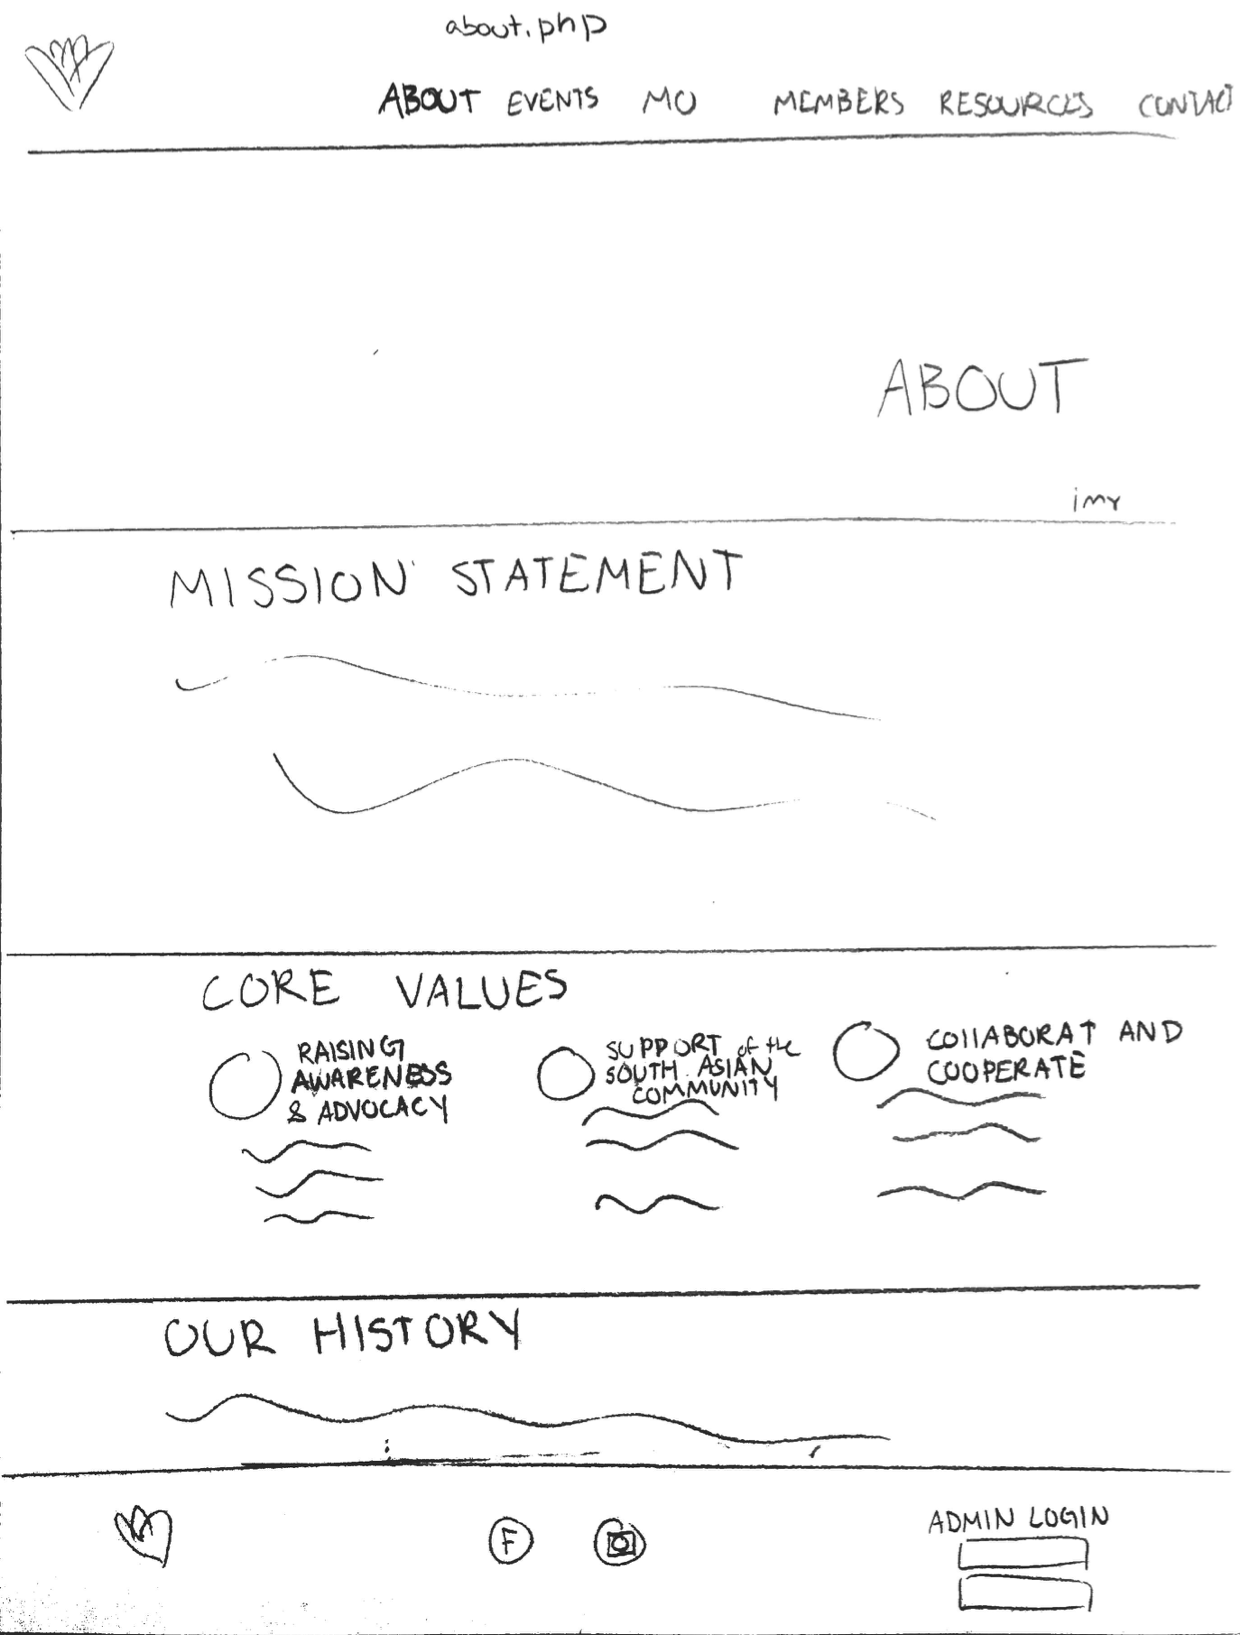 about.php
ABOUT EVENTS MO MEMBERS RESOURCES CONTACT
ABOUT
img
MISSION STATEMENT
CORE VALUES
RAISING
AWARENESS
& ADVOCACY
SUPPORT of the
SOUTH ASIAN
COMMUNITY
COllABORAT AND
COOPERATE
OUR HISTORY
F
ADMIN LOGIN